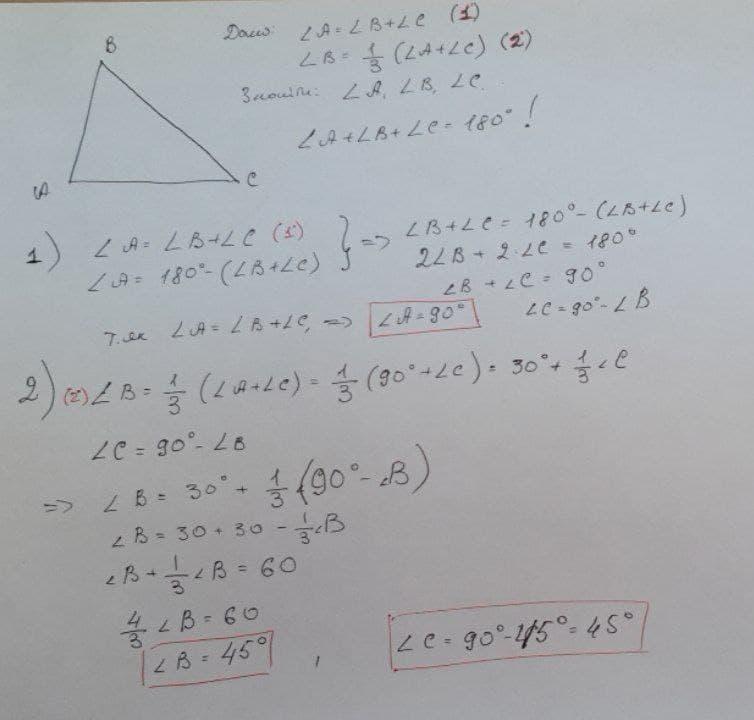 B
A
C
Дано: ∠A = ∠B + ∠C (1)
∠B = 1/3 (∠A + ∠C) (2)
Знайти: ∠A, ∠B, ∠C.
∠A + ∠B + ∠C = 180° !
1) ∠A = ∠B + ∠C (1)
∠A = 180° - (∠B + ∠C) } => ∠B + ∠C = 180° - (∠B + ∠C)
2∠B + 2·∠C = 180°
∠B + ∠C = 90°
Т.як ∠A = ∠B + ∠C, => ∠A = 90° ∠C = 90° - ∠B
2) (2) ∠B = 1/3 (∠A + ∠C) = 1/3 (90° + ∠C) = 30° + 1/3 ∠C
∠C = 90° - ∠B
=> ∠B = 30° + 1/3 (90° - ∠B)
∠B = 30 + 30 - 1/3 ∠B
∠B + 1/3 ∠B = 60
4/3 ∠B = 60
∠B = 45° , ∠C = 90° - 45° = 45°